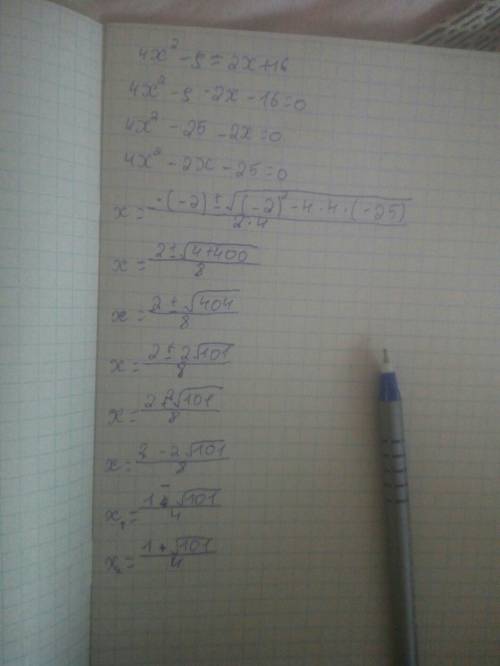 4x² - 9 = 2x+16
4x² - 9 - 2x - 16 = 0
4x² - 25 - 2x = 0
4x² - 2x - 25 = 0
x = -(-2) ± √(-2)² - 4 · 4 · (-25) / 2·4
x = 2 ± √4+400 / 8
x = 2 ± √404 / 8
x = 2 ± 2√101 / 8
x = 2 + 2√101 / 8
x = 2 - 2√101 / 8
x₁ = 1 - √101 / 4
x₂ = 1 + √101 / 4